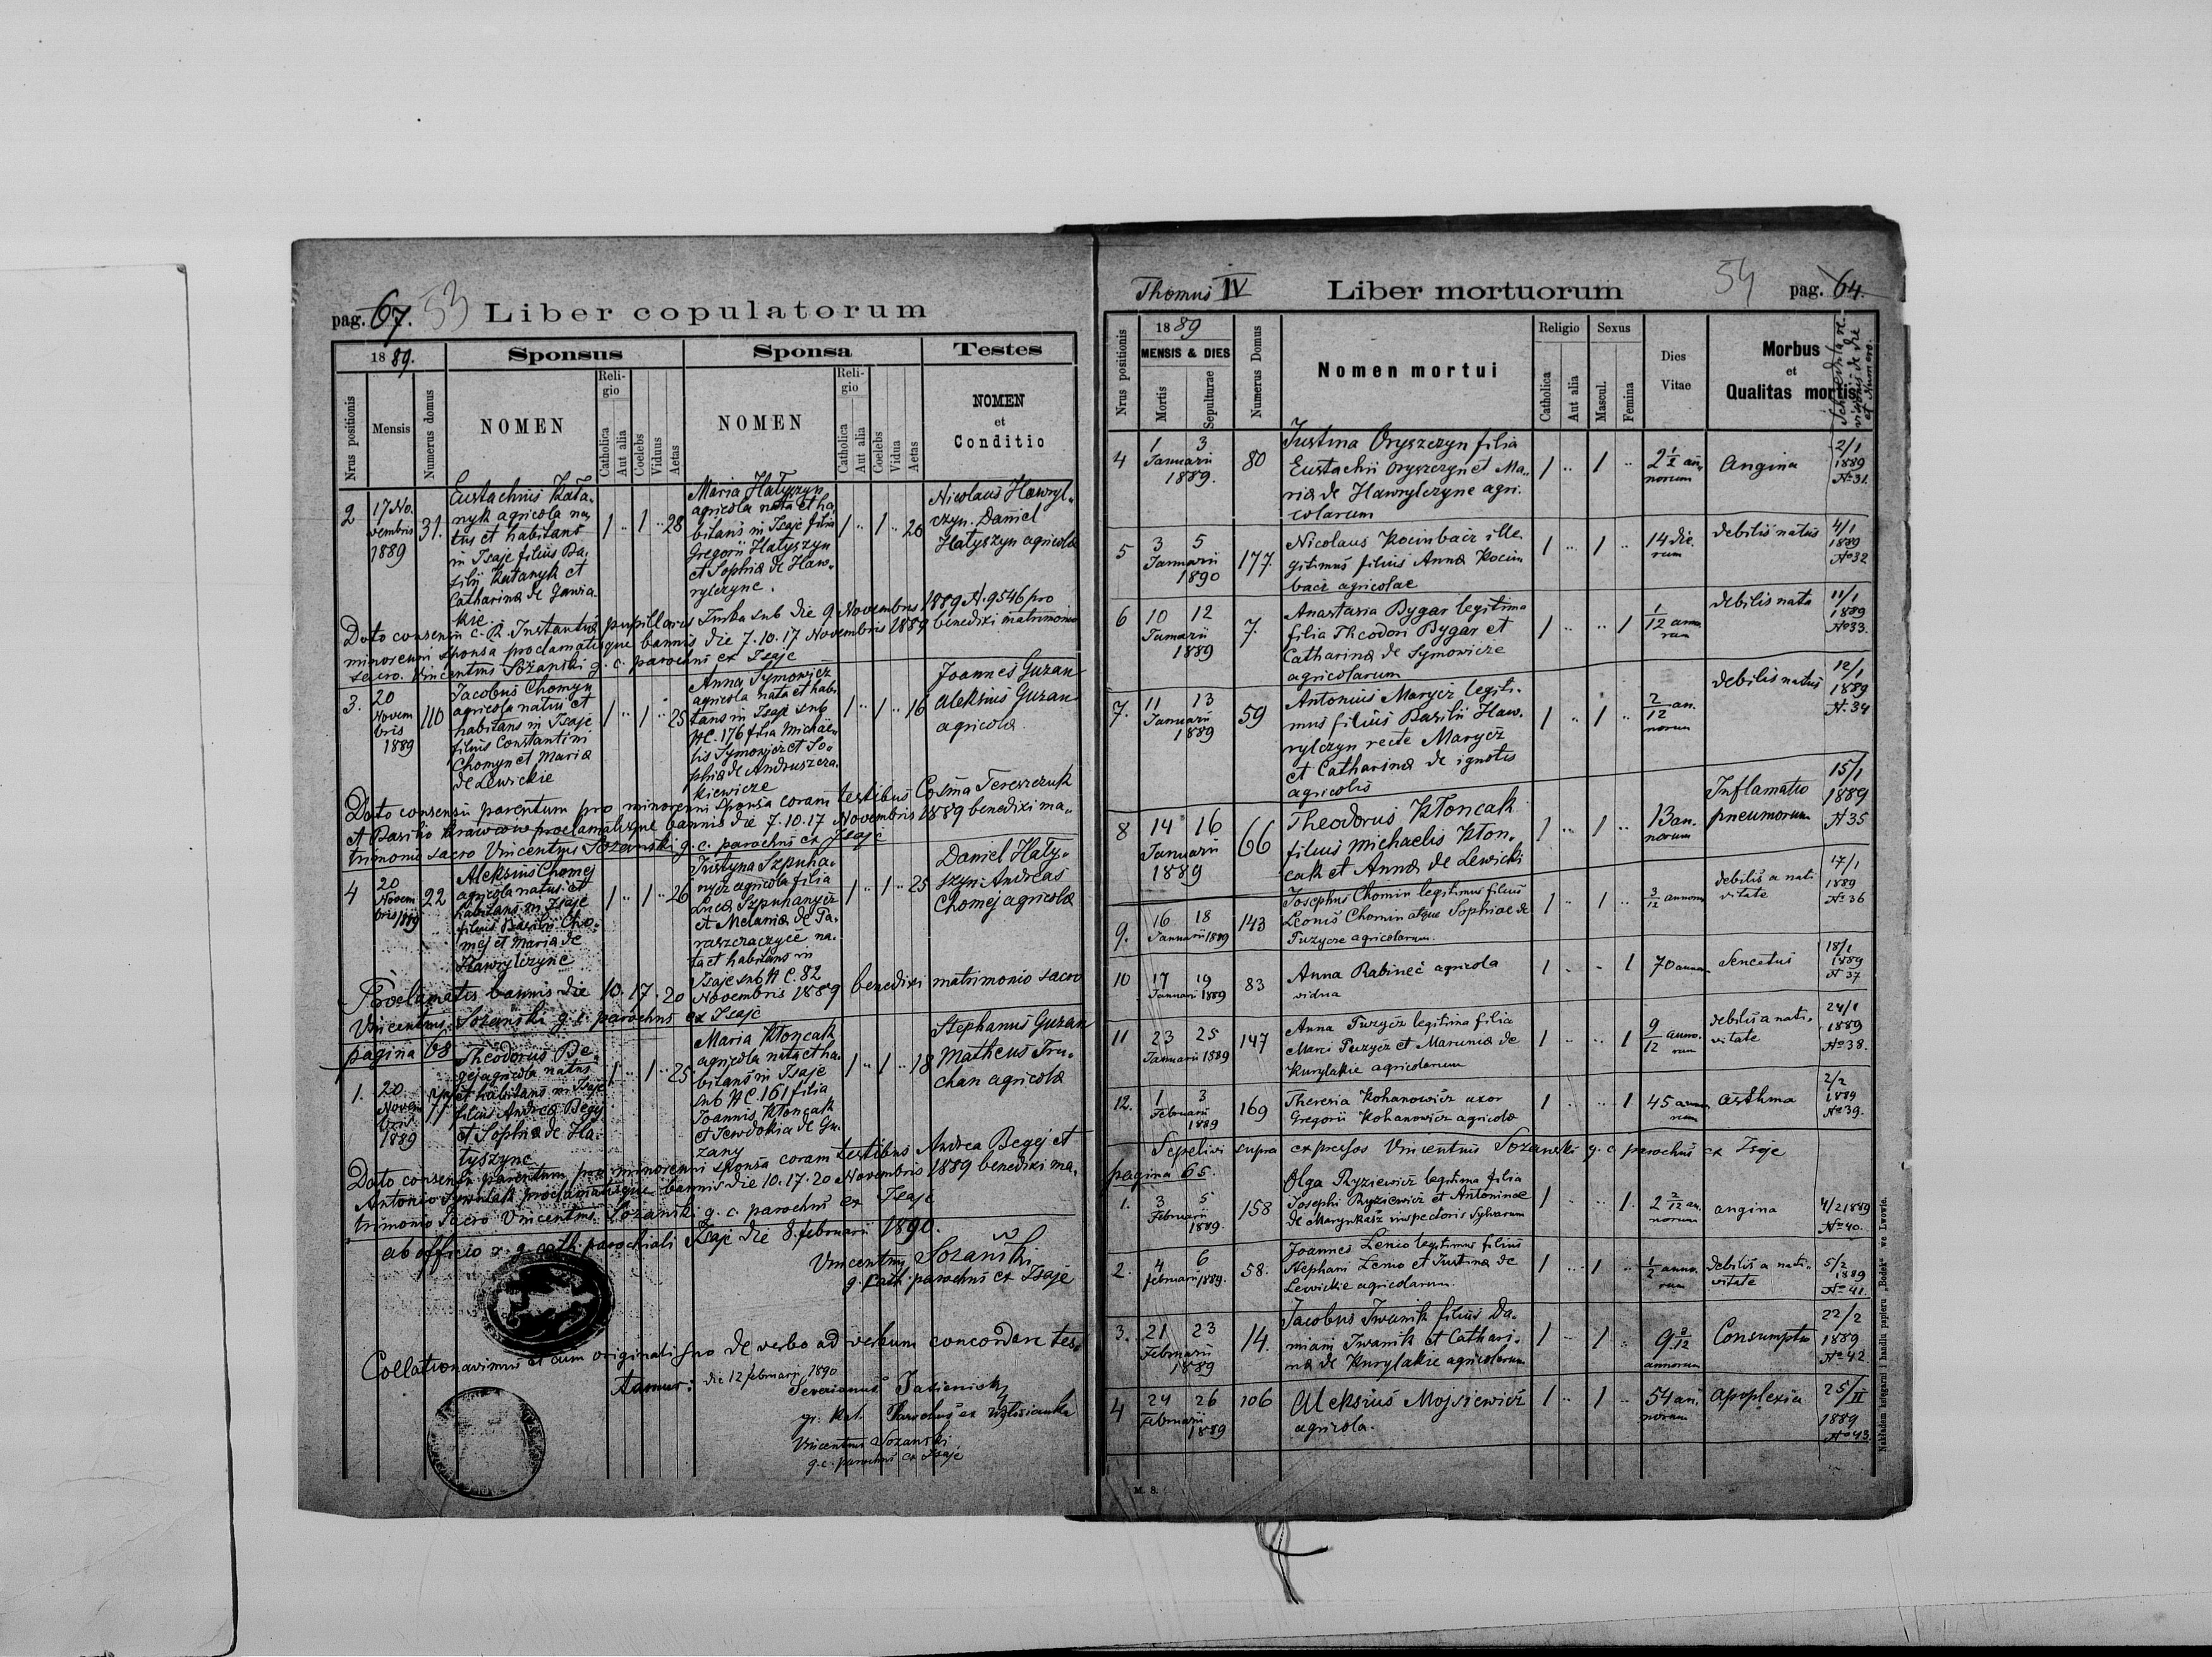 pag. 67. 53 Liber copulatorum
1889. Sponsus Sponsa Testes
Nrus positionis Mensis Numerus domus NOMEN Religio Catholica Aut alia Coelebs Viduus Aetas NOMEN Religio Catholica Aut alia Coelebs Vidua Aetas NOMEN et Conditio
2
17 No-
vembris
1889
31.
Eustachius Kała-
nyk agricola na-
tus et habitans
in Isaje filius Ba-
silii Kałanyk et
Catharina de Gawia-
kie
1 .. 1 .. 28
Maria Hałyszyn
agricola nata et ha-
bitans in Isaje filia
Gregorii Hałyszyn
et Sophia de Haw-
rylczyne.
1 .. 1 .. 20
Nicolaus Hawryl-
czyn. Daniel
Hałyszyn agricola
Dato consensu c. R. Instantia pupillaris Turka sub die 9 Novembris 1889 N. 9546 pro
minorenni sponsa proclamatisque bannis die 7. 10. 17 Novembris 1889 benedixi matrimonio
sacro. Vincentius Sozański g. c. parochus ex Isaje
3.
20
Novem
bris
1889
110
Jacobus Chomyn
agricola natus et
habitans in Isaje
filius Constantini
Chomyn et Maria
de Lewickie
1 .. 1 .. 25
Anna Symowicz
agricola nata et habi-
tans in Isaje sub
NC. 176 filia Michae-
lis Symowicz et So-
phia de Andruszcza-
kiewicze
1 .. 1 .. 16
Joannes Guzan
Aleksius Guzan
agricola
Dato consensu parentum pro minorenni sponsa coram testibus Cosma Tereszczuk
et Basilio Krawcow proclamatisque bannis die 7. 10. 17 Novembris 1889 benedixi ma-
trimonio sacro Vincentius Sozański g. c. parochus ex Isaje
4
20
Novem
bris 1889
22
Aleksius Chomej
agricola natus et
habitans in Isaje
filius Basilii Cho-
mej et Maria de
Hawrylczyne
1 .. 1 .. 26
Justyna Szpuha-
nycz agricola filia
Luca Szpuhanycz
et Melania de Ta-
raszczaczyce na-
ta et habitans in
Isaje sub N C. 82
1 .. 1 .. 25
Daniel Hały-
szyn. Andreas
Chomej agricola
Proclamatis bannis die 10. 17. 20 Novembris 1889 benedixi matrimonio sacro
Vincentius Sozański g. c. parochus ex Isaje
pagina 68
1.
20
Novem
bris
1889
77
Theodorus Be-
gej agricola natus
et habitans in Isaje
filius Andrea Begej
et Sophia de Ha-
łyszyne
1 .. 1 .. 25
Maria Kłoncak
agricola nata et ha-
bitans in Isaje
sub N C. 161 filia
Joannis Kłoncak
et Jewdokia de Gu-
zany
1 .. 1 .. 18
Stephanus Guzan
Matheus Tru-
chan agricola
Dato consensu parentum pro minorenni sponsa coram testibus Andrea Begej et
Antonio proclamatisque bannis die 10. 17. 20 Novembris 1889 benedixi ma-
trimonio sacro Vincentius Sozański g. c. parochus ex Isaje
ab officio r. g. cath. parochiali Isaje die 8. februarii 1890.
Vincentius Sozański
g. cath. parochus ex Isaje
Collationavimus et cum originali suo de verbo ad verbum concordare tes-
tamur: die 12 februarii 1890
Severianus Jasienicki
gr. kat. Parochus ex
Vincentius Sozanski
g. c. parochus ex Isaje
Thomus IV Liber mortuorum 54 pag. 64.
Nrus positionis 1889 MENSIS & DIES Mortis Sepulturae Numerus Domus Nomen mortui Religio Catholica Aut alia Sexus Mascul. Femina Dies Vitae Morbus et Qualitas mortis Schedula re- visionis de die et Numero.
4
1 3
Januarii
1889.
80
Justina Oryszczyn filia
Eustachii Oryszczyn et Ma-
ria de Hawrylczyne agri-
colarum
1 .. 1 ..
2 1/2 an-
norum
Angina
2/1
1889
No 31.
5
3 5
Januarii
1890
177.
Nicolaus Kocinbacz ille-
gitimus filius Anna Kocin
bacz agricolae
1 .. 1 ..
14 die-
rum
debilis natus
4/1
1889
No 32
6
10 12
Januarii
1889
7.
Anastasia Bygar legitima
filia Theodori Bygar et
Catharina de Symowicze
agricolarum
1 .. .. 1
1/12 anno
rum
debilis nata
11/1
1889
No 33.
7.
11 13
Januarii
1889
59
Antonius Marycz legiti-
mus filius Basilii Haw-
rylczyn recte Marycz
et Catharina de ignotis
agricolis
1 .. 1 ..
2/12 an-
norum
debilis natus
12/1
1889
N. 34
8
14 16
Januarii
1889
66
Theodorus Kłoncak
filius Michaelis Kłon-
cak et Anna de Lewicki
1 .. 1 ..
13 an-
norum
Inflamatio
pneumorum
15/1
1889
N 35
9.
16 18
Januarii 1889
143
Josephus Chomin legitimus filius
Leonis Chomin atque Sophiae de
Tuzycze agricolarum.
1 .. 1 ..
3/12 annorum
debilis a nati
vitate
17/1
1889
No 36
10
17 19
Januarii 1889
83
Anna Rabineć agricola
vidua
1 .. - 1
70 annorum
Senectus
18/1
1889
N 37
11
23 25
Januarii 1889
147
Anna Tuzycz legitima filia
Marci Tuzycz et Marunia de
Kurylakie agricolarum
1 .. .. 1
9/12 anno-
rum
debilis a nati-
vitate
24/1
1889
No 38.
12.
1 3
Februarii
1889
169
Theresia Kohanowicz uxor
Gregorii Kohanowicz agricola
1 .. .. 1
45 anno
rum
Asthma
2/2
1889
No 39.
Sepelivi supra expressos Vincentius Sozanski g. c. parochus ex Isaje
pagina 65.
1.
3 5
Februarii
1889.
158
Olga Ryziewicz legitima filia
Josephi Ryziewicz et Antoninae
de Marynkasz inspectoris Sylvarum
1 .. .. 1.
2 2/12 an-
norum
angina
4/2 1889
No 40.
2.
4 6
februarii 1889.
58.
Joannes Lenio legitimus filius
Stephani Lenio et Justina de
Lewickie agricolarum.
1 .. 1 ..
1/2 anno-
rum
debilis a nati-
vitate
5/2
1889
No 41.
3.
21 23
Februarii
1889
14.
Jacobus Iwanik filius Da-
miani Iwanik et Cathari-
na de Kurylakie agricolarum
1 .. 1 ..
9 3/12
annorum
Consumptio
22/2
1889
No 42
4
24 26
Februarii
1889
106
Aleksius Mojsiewicz
agricola.
1 .. 1 ..
54 an
norum
apoplexia
25/II
1889
No 43.
M. 8.
Nakładem księgarni i handlu papieru „Bodek" we Lwowie.